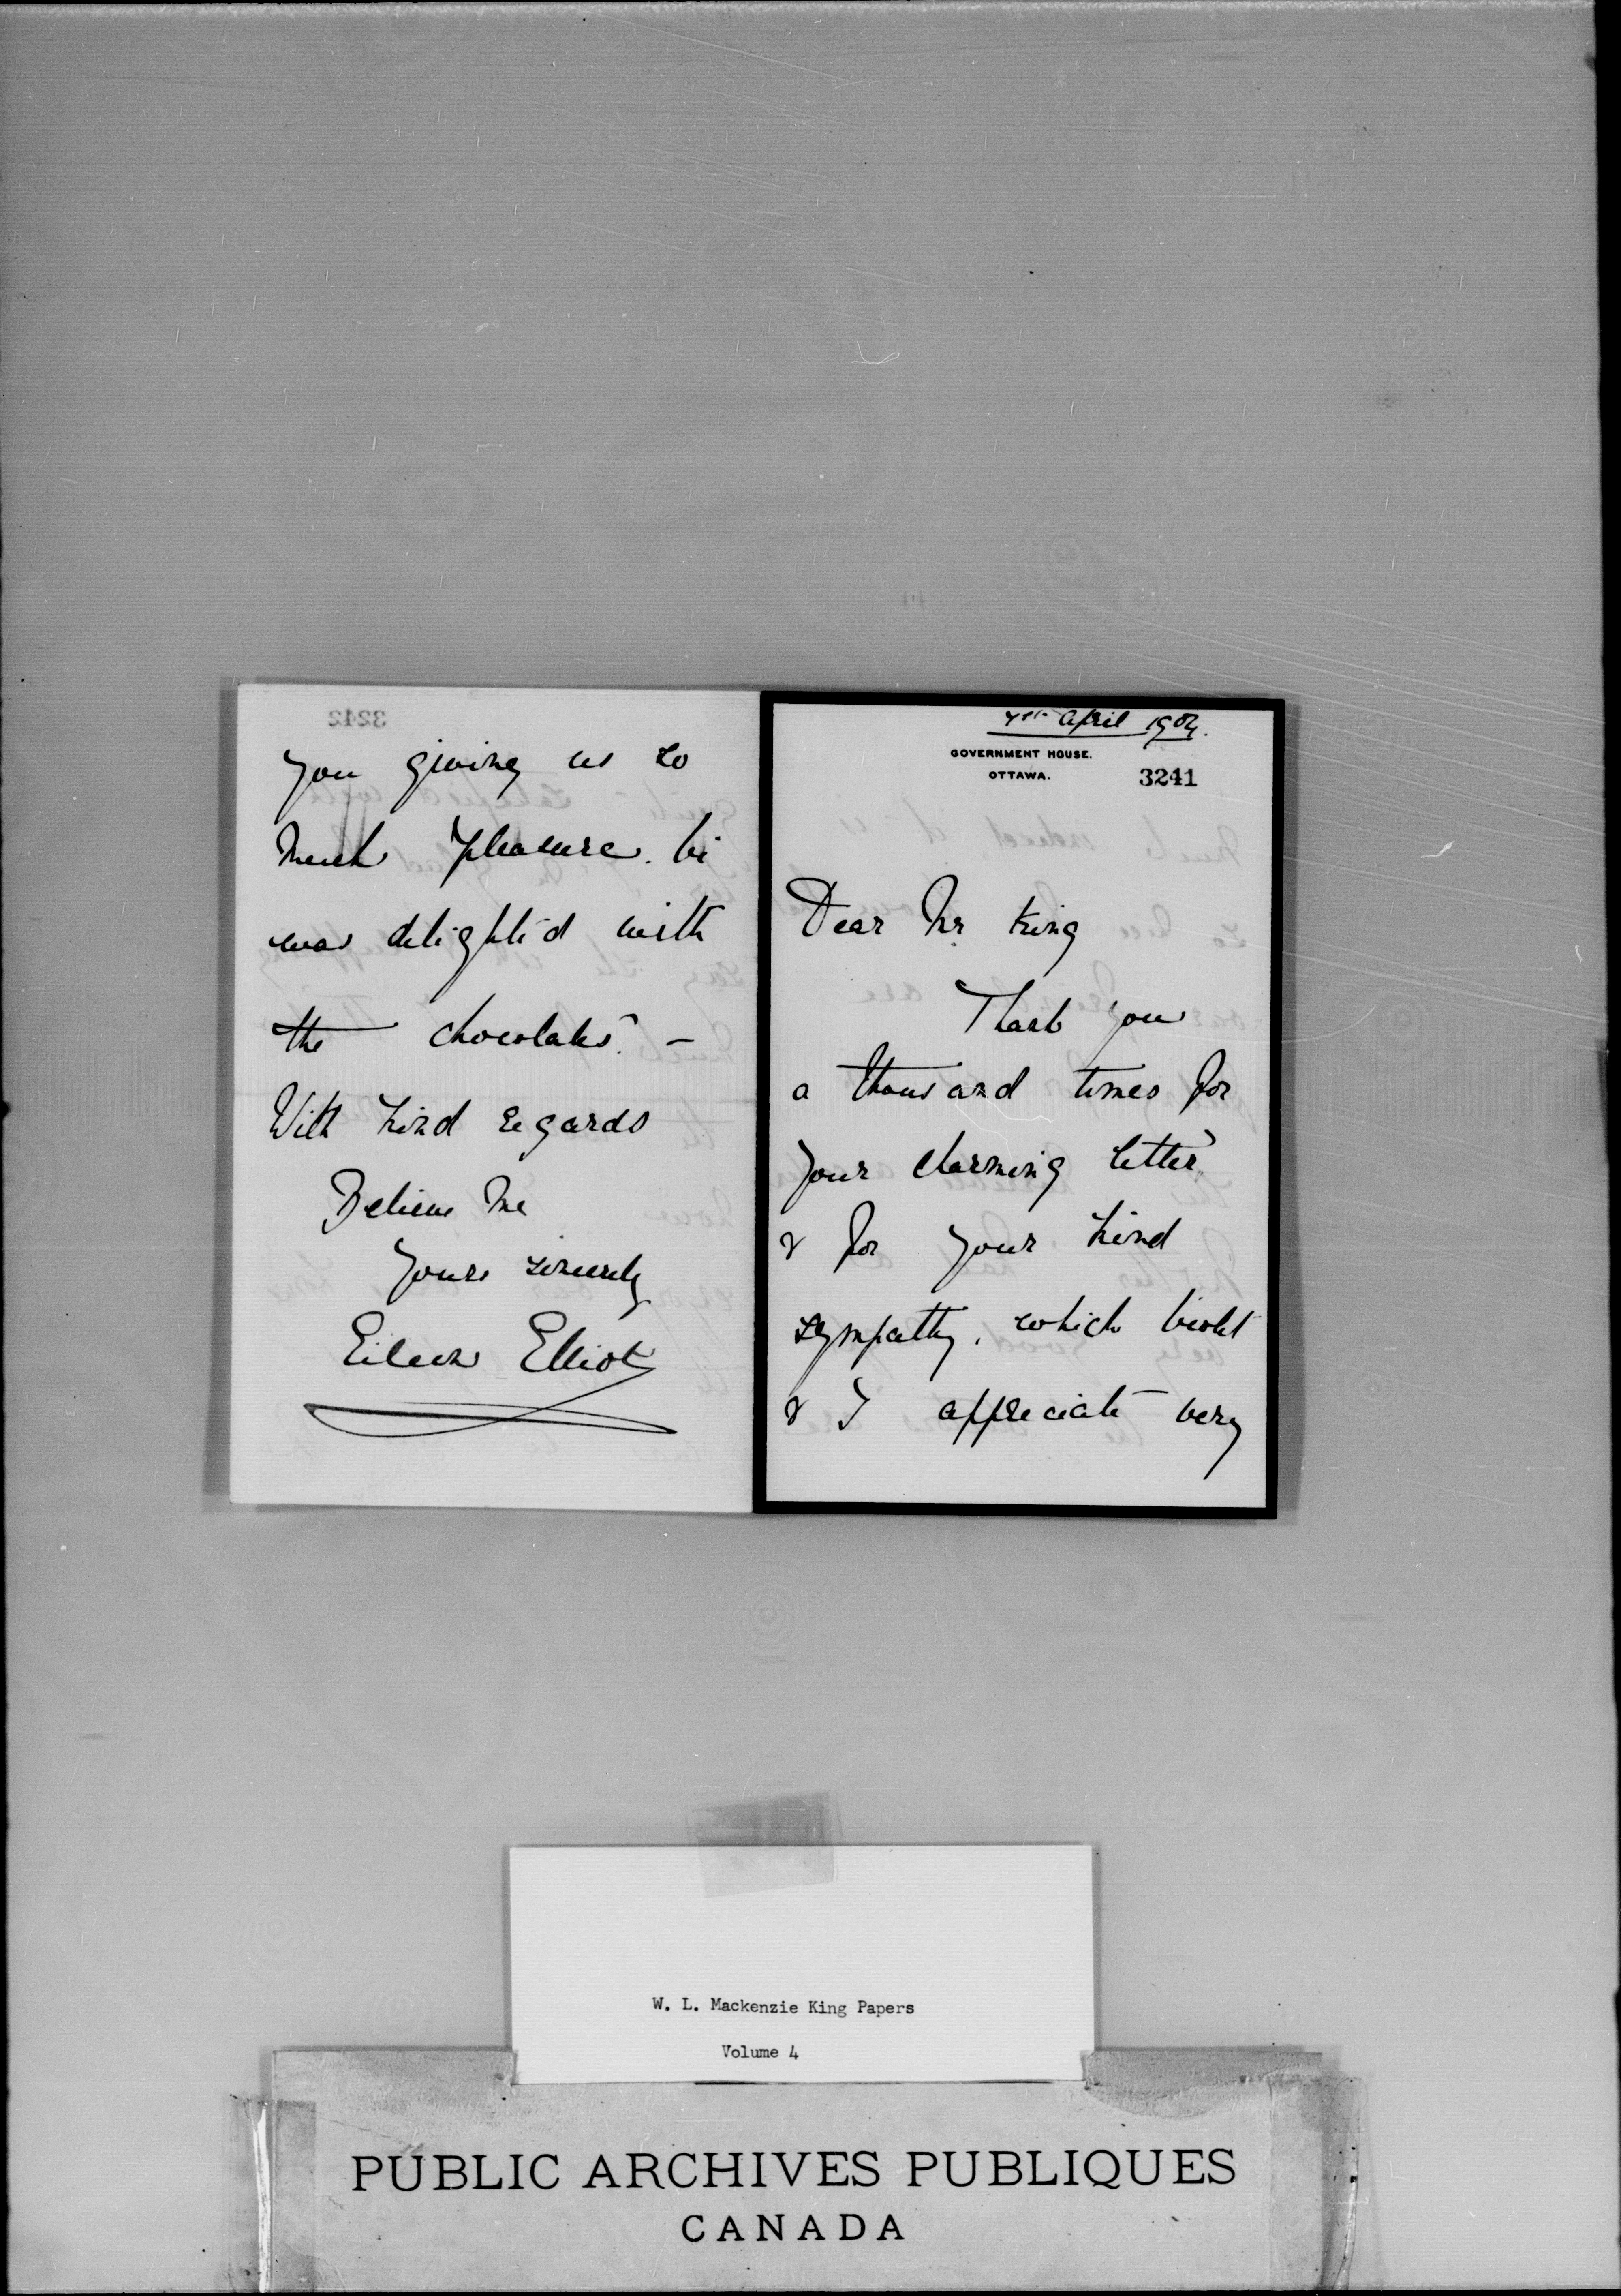 3242
you giving us so
much pleasure. Vi
was delighted with
the chocolates. –
With kind regards
Believe me
Yours sincerely
Eileen Elliot
April 1904.
GOVERNMENT HOUSE.
OTTAWA.
3241
Dear Mr King
Thank you
a thousand times for
your charming letter
& for your kind
sympathy, which Violet
& I appreciate very
W. L. Mackenzie King Papers
Volume 4
PUBLIC ARCHIVES PUBLIQUES
CANADA